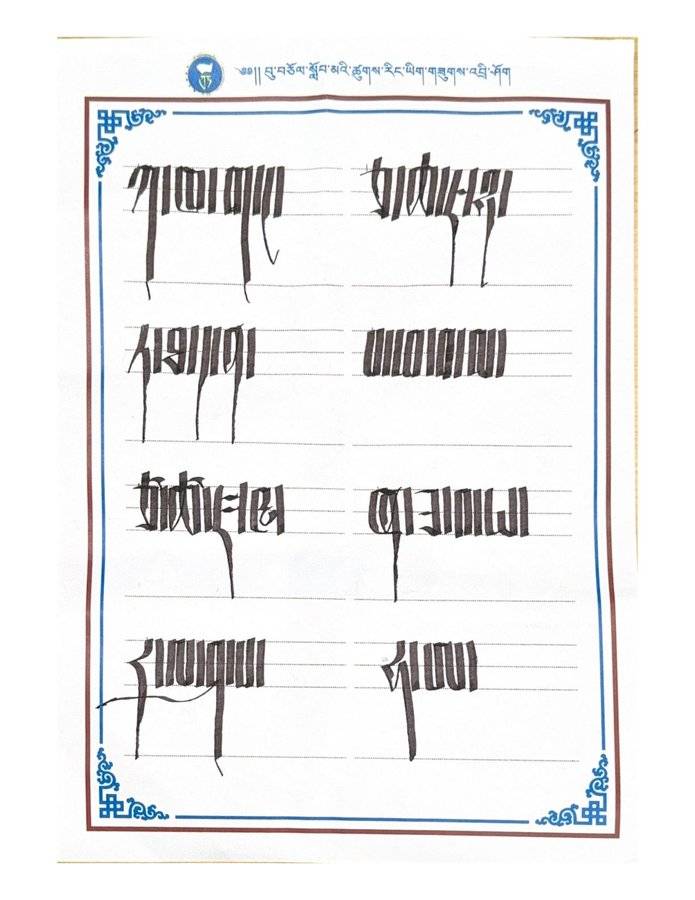 ༄༅།། བུ་བཅོལ་སློབ་མའི་ཚུགས་རིང་ཡིག་གཟུགས་འབྲི་ཤོག
ཀ།ཁ།ག།ང།
ཅ།ཆ།ཇ།ཉ།
ཏ།ཐ།ད།ན།
པ།ཕ།བ།མ།
ཙ།ཚ།ཛ།ཝ།
ཞ།ཟ།འ།ཡ།
ར།ལ།ཤ།ས།
ཧ།ཨ།